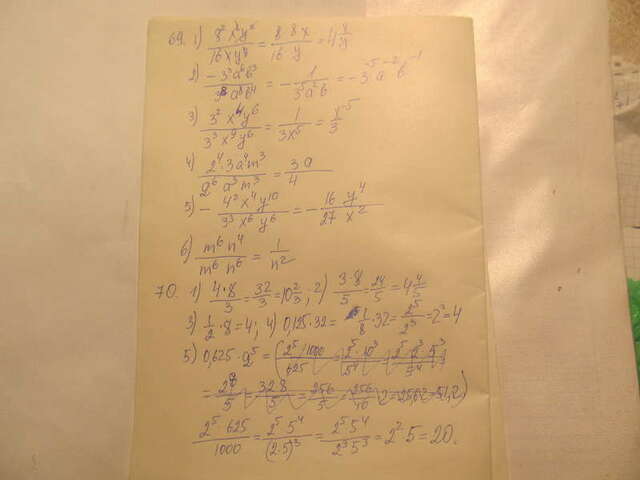 69. 1) 8² x² y² / 16 x y³ = 8·8x / 16·y = 4 x/y
2) −3³a⁶b³ / 3⁸a⁸b⁴ = − 1 / 3⁵a²b = −3⁻⁵a⁻²b⁻¹
3) 3² x⁴ y⁶ / 3³ x⁹ y⁶ = 1 / 3x⁵ = x⁻⁵ / 3
4) 2⁴·3a⁴m³ / 2⁶ a³ m³ = 3a / 4
5) − 4² x⁴ y¹⁰ / 3³ x⁶ y⁶ = − 16 y⁴ / 27 x²
6) m⁶ n⁴ / m⁶ n⁶ = 1 / n²
70. 1) 4·8 / 3 = 32 / 3 = 10 2/3; 2) 3·8 / 5 = 24 / 5 = 4 4/5
3) 1/2 · 8 = 4; 4) 0,125·32 = 1/8 · 32 = 2⁵ / 2³ = 2² = 4
5) 0,625·2⁵ =
2⁵·625 / 1000 = 2⁵·5⁴ / (2·5)³ = 2⁵·5⁴ / 2³5³ = 2²·5 = 20.